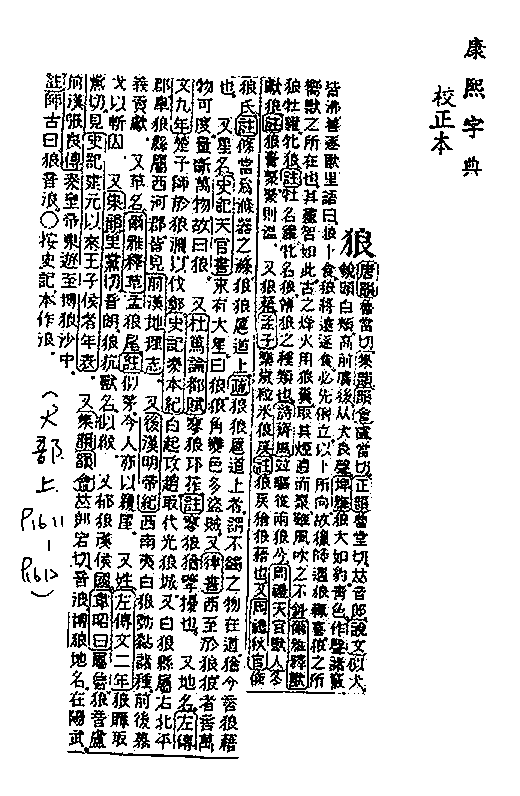 康熙字典
校正本
狼
唐韻魯當切集韻韻會盧當切正韻魯堂切𠀤音郎說文似犬
銳頭白頰高前廣後从犬良聲埤雅狼大如狗靑色作聲諸竅
皆沸善逐獸里語曰狼卜食狼將遠逐食必先倒立以卜所向故獵師遇狼輒喜狼之所
嚮獸之所在也其靈智如此古之烽火用狼糞取其煙直而聚雖風吹之不斜爾雅釋獸
狼牡貛牝狼註牡名貛牝名狼辨狼之種類也詩齊風並驅從兩狼兮周禮天官獸人冬
獻狼註狼膏聚聚則溫 又狼藉孟子樂歲粒米狼戾註狼戾猶狼藉也又周禮秋官條
狼氏註條當爲滌器之滌狼狼扈道上疏狼狼扈道上者謂不蠲之物在道猶今言狼藉
也 又星名史記天官書東有大星曰狼狼角變色多盜賊又律書西至於狼狼者言萬
物可度量斷萬物故曰狼 又杜篤論都賦狼邛莋註狼猶擾也 又地名左傳
文九年楚子師於狼淵以伐鄭史記秦本紀白起攻趙取代光狼城又白狼縣屬右北平
郡臯狼縣屬西河郡皆見前漢地理志 又後漢明帝紀西南夷白狼動黏諸種前後慕
義貢獻 又草名爾雅釋草孟狼尾註似茅今人亦以覆屋 又姓左傳文二年狼瞫取
戈以斬囚 又集韻里黨切音朗狼抗獸名似猴 又郁狼漢侯國韋昭曰屬魯狼音盧
黨切見史記建元以來王子侯者年表 又集韻韻會𠀤郎宕切音浪博狼地名在陽武
前漢張良傳秦皇帝東遊至博狼沙中
註師古曰狼音浪○按史記本作浪
(犬部上 P1611-P1612)